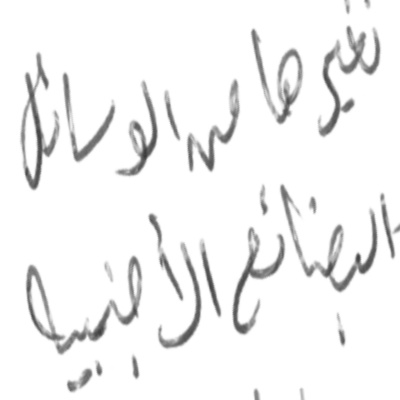 تغيرها من الوسائل
البضائع الأجنبية